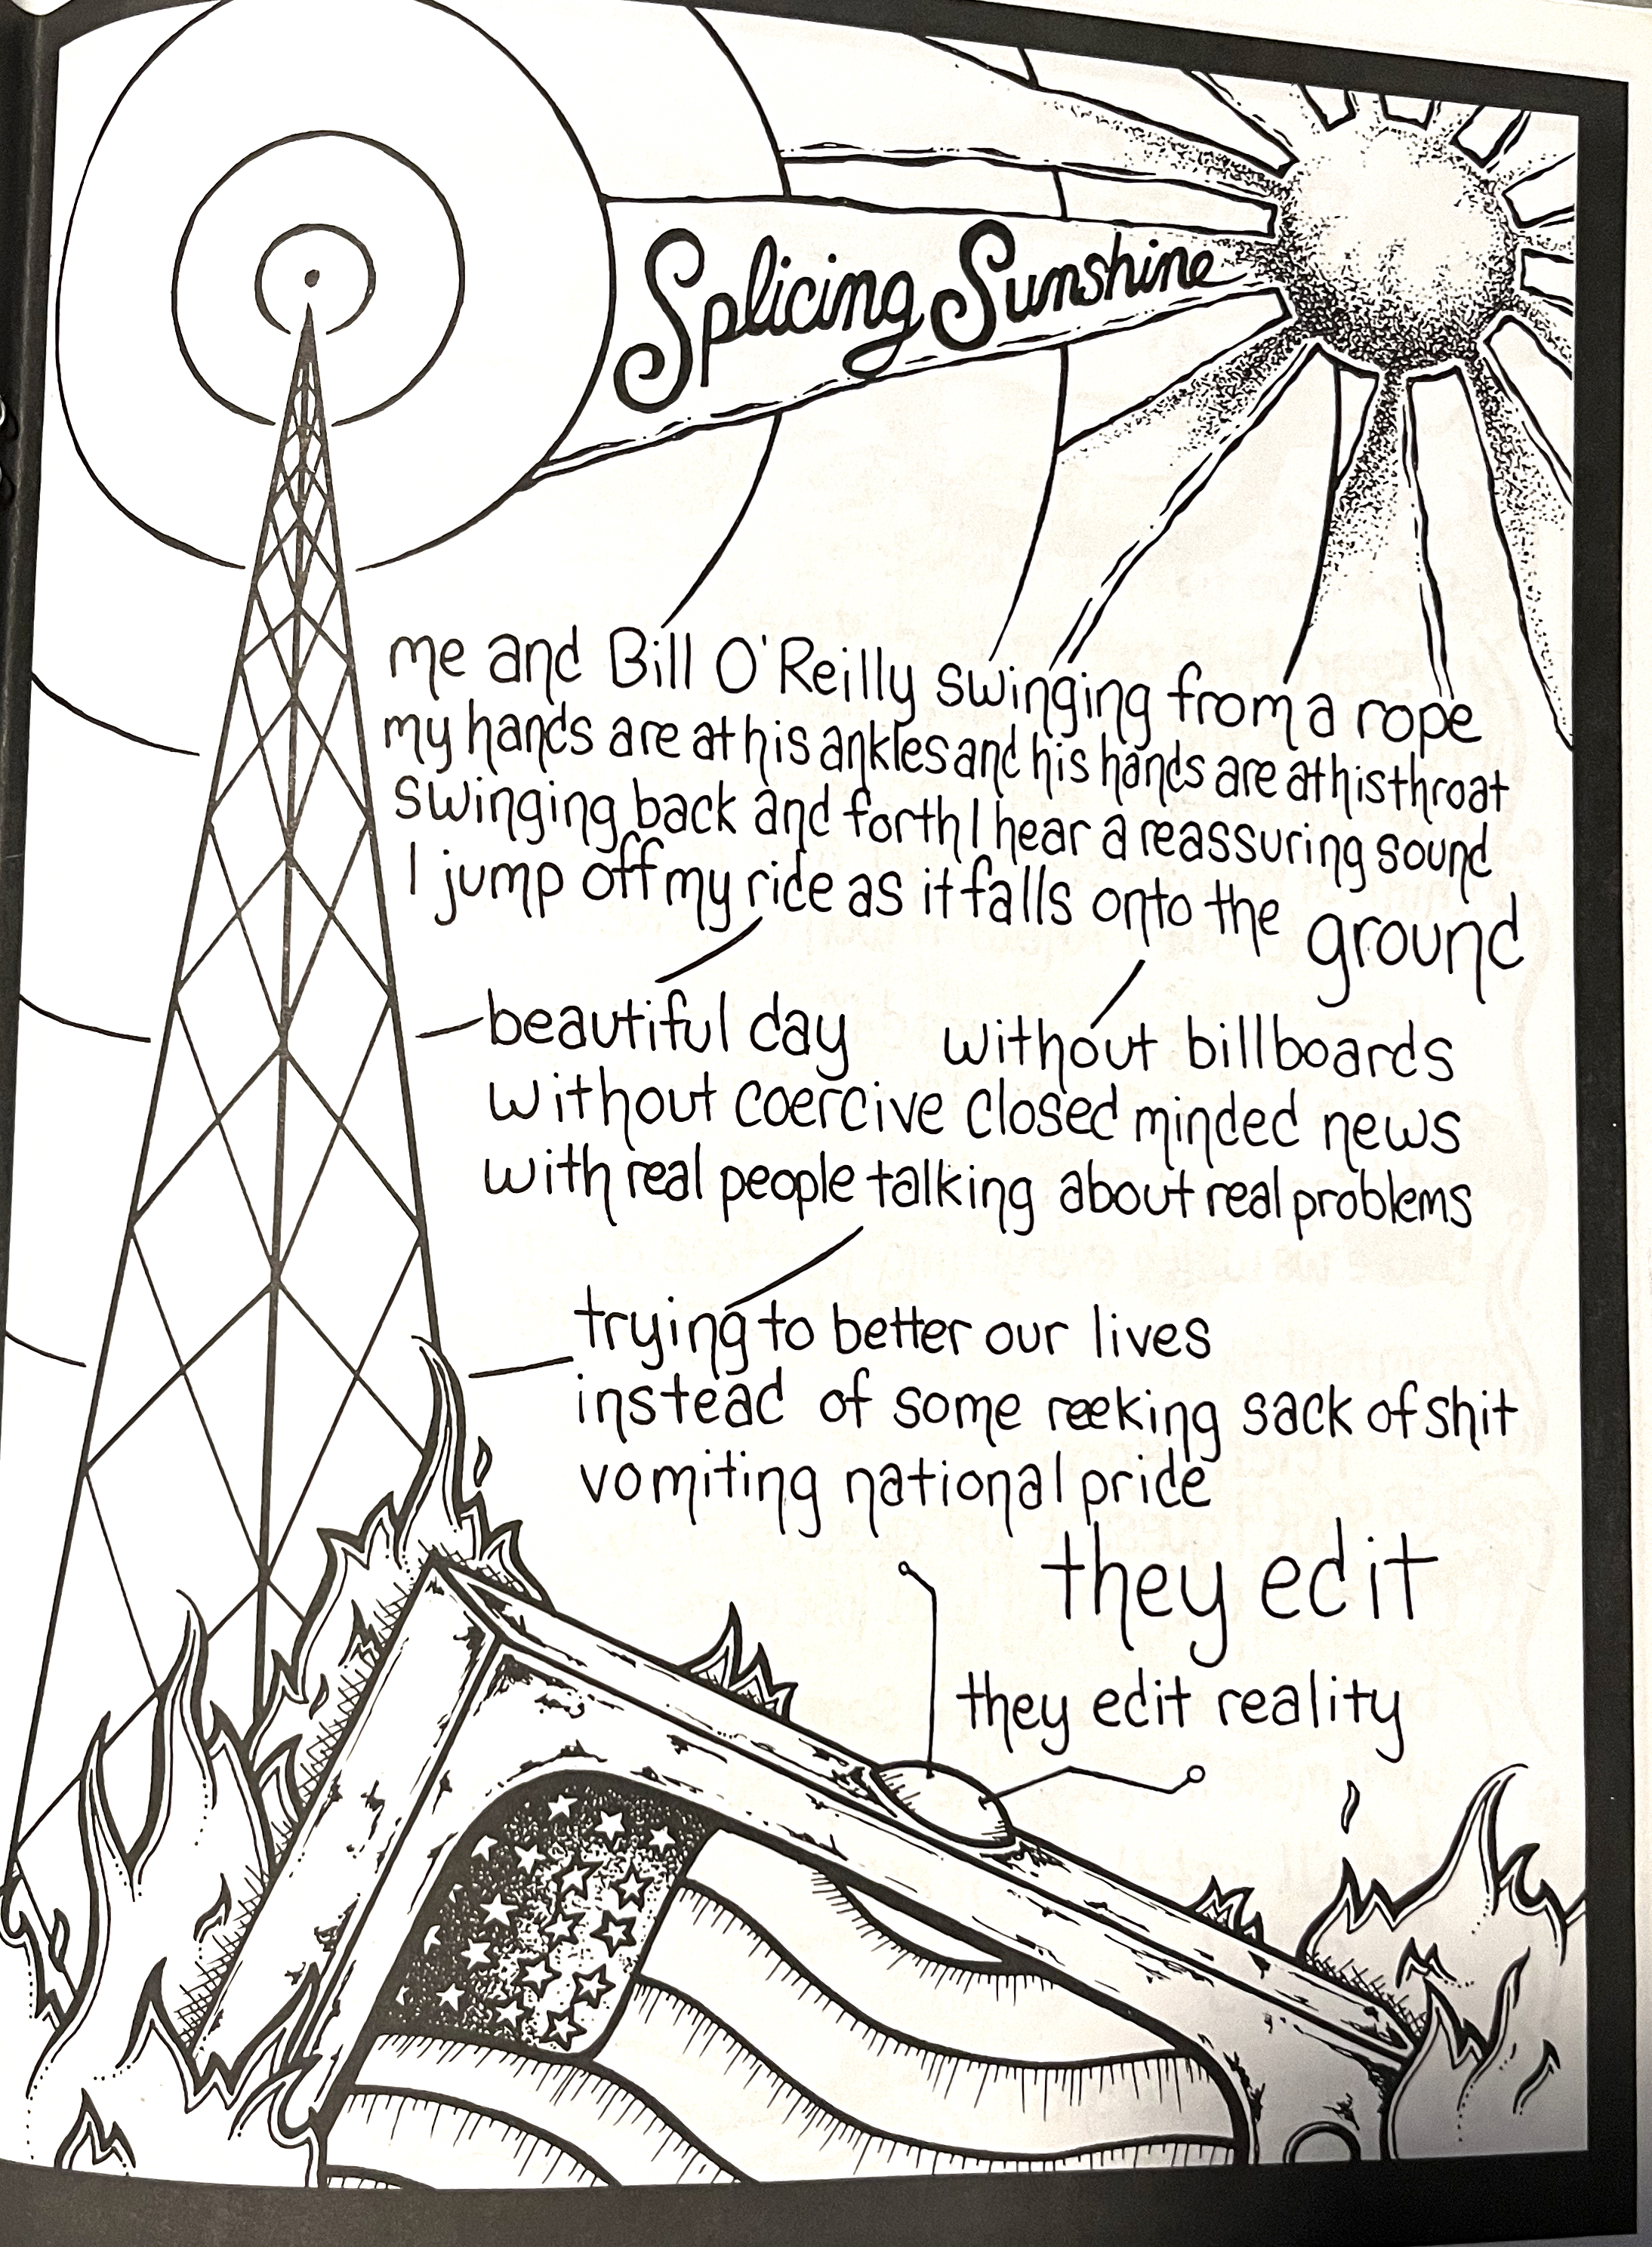 Splicing Sunshine
me and Bill O'Reilly swinging from a rope
my hands are at his ankles and his hands are at his throat
swinging back and forth I hear a reassuring sound
I jump off my ride as it falls onto the ground
beautiful day without billboards
without coercive closed minded news
with real people talking about real problems
trying to better our lives
instead of some reeking sack of shit
vomiting national pride
they edit
they edit reality